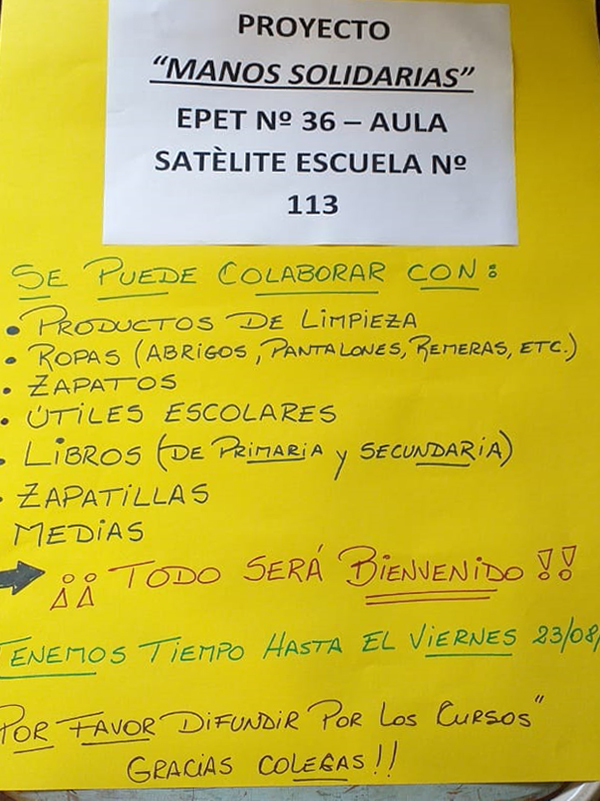 PROYECTO
“MANOS SOLIDARIAS”
EPET Nº 36 – AULA
SATÈLITE ESCUELA Nº
113
SE PUEDE COLABORAR CON:
• PRODUCTOS DE LIMPIEZA
• ROPAS (ABRIGOS, PANTALONES, REMERAS, ETC.)
• ZAPATOS
• ÚTILES ESCOLARES
• LIBROS (DE PRIMARIA Y SECUNDARIA)
• ZAPATILLAS
MEDIAS
¡¡ TODO SERÁ BIENVENIDO !!
TENEMOS TIEMPO HASTA EL VIERNES 23/08/
POR FAVOR DIFUNDIR POR LOS CURSOS"
GRACIAS COLEGAS!!